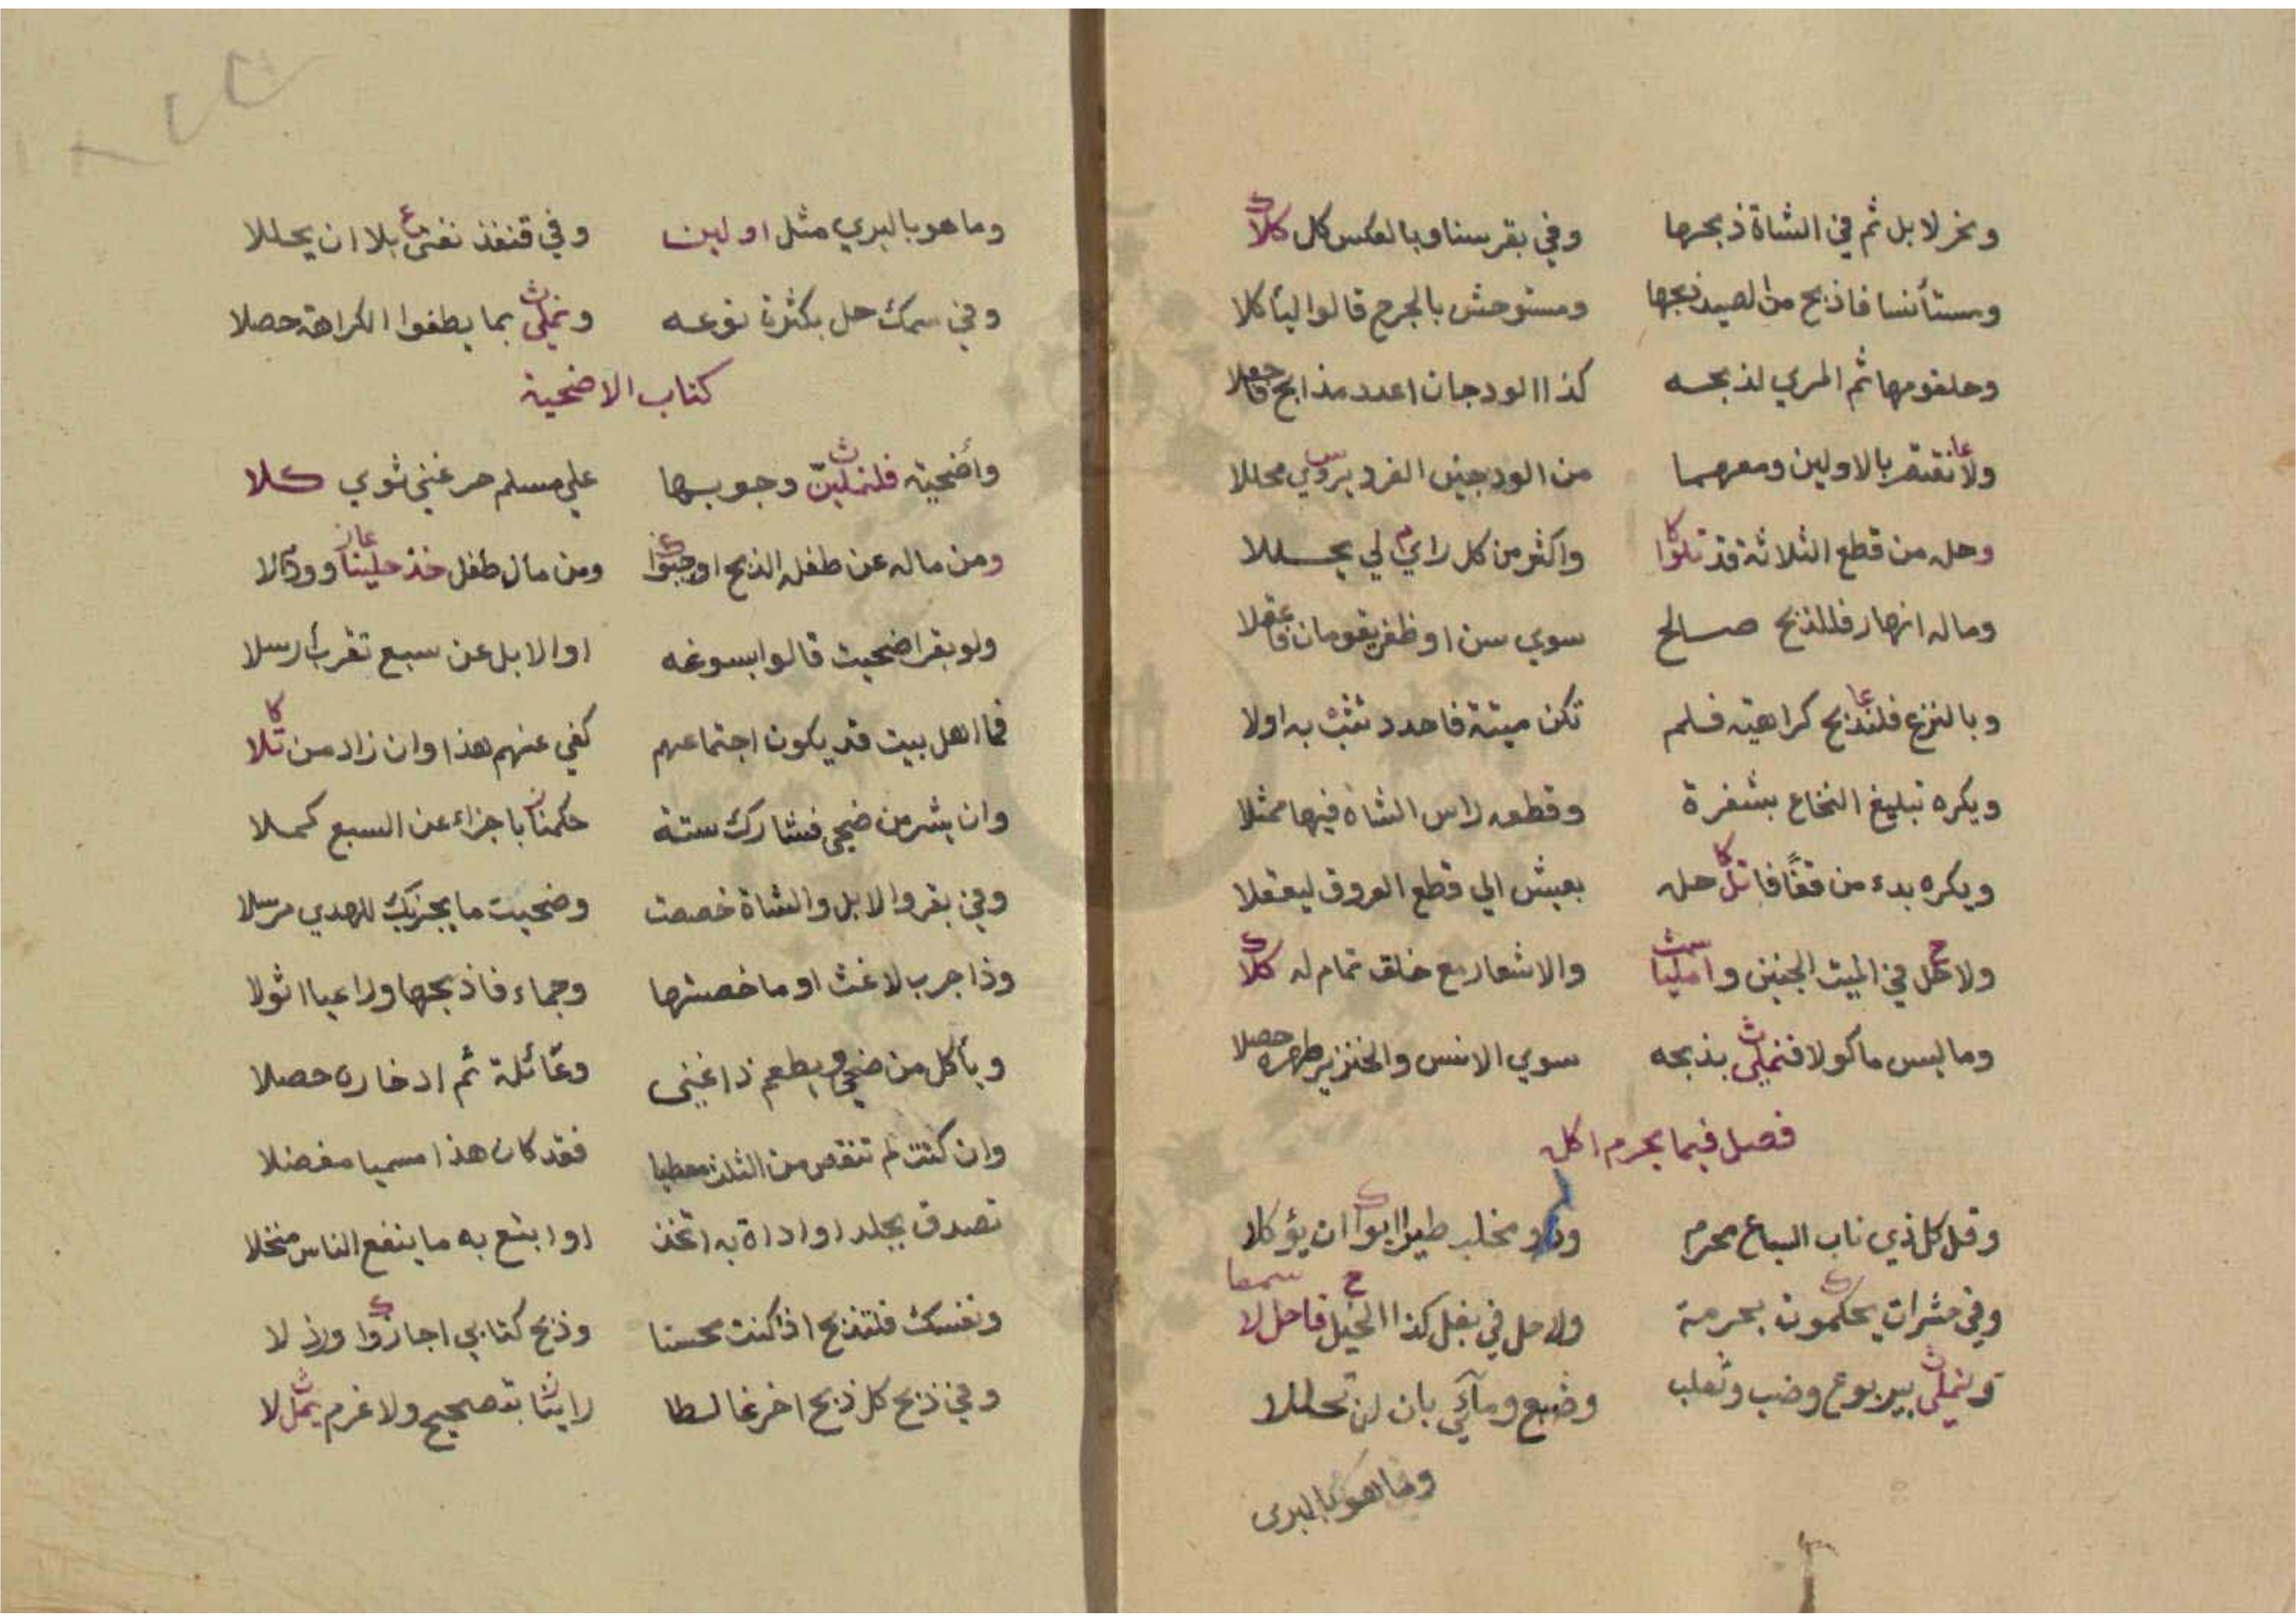 ونحر لا بل ثم في الشاة ذبحها وفي بقر سنا وبالعكس كل كلا
ومستأنسا فاذبح من الصيد نجها ومستوحش بالجرح قالوا ليأكلا
وحلقومها ثم المري لذبحه كذا الودجان اعدد مذابح
ولا نقتصر بالاولين ومعهما من الودجين الفرد يروي محللا
وحله من قطع الثلاثة قد تلوا واكثر من كل راي لي يحللا
وماله انهار فللذبح صالح سوي سن او ظفر يقومان
وبالنزع فلتذبح كراهية فلم تكن ميتة فاحدد تثب به اولا
ويكره تبليغ النخاع بشفرة وقطعه راس الشاة فيها ممثلا
ويكره بدء من قفًا فاتل حله بعيش الي قطع العروق ليعقلا
ولا حل في الميت الجنين وامليا والاشعار مع خلق تمام له كلا
وما ليس ماكولا فنملي بذبحه سوي الانس والخنزير طهره حصلا
فصل فيما يحرم اكله
وقل كل ذي ناب السباع محرم وذو مخلب طيرا ابوا ان يؤكلا
وفي حشرات يحكمون بحرمة ولا حل في بغل كذا الخيل فاحل لا
ونملي بيربوع وضب وثعلب وضبع ومآئي بان لن تحللا
وما هو بالبرى
وما هو بالبري مثل اولين وفي قنفذ نفتي بلا ان يحللا
وفي سمك حل بكثرة نوعه ونملي بما يطفوا الكراهة حصلا
كتاب الاضحية
وأضحية فلنملين وجوبها علي مسلم حر غني ثوي كلا
ومن ماله عن طفله الذبح اوجبوا ومن مال طفل خذ حلينا
ولو بقرا ضحيت قالوا بسوغه او الابل عن سبع تقرب ارسلا
فما اهل بيت قد يكون اجتماعهم كفي عنهم هذا وان زاد من تلا
وان يشر من ضحي فشارك ستة حكمنا باجزاء عن السبع كملا
وفي بقر والابل والشاة خصصت وضحيت ما يجزيك للهدي مرسلا
وذا جرب لا غث او ما خصيتها وجماء فاذبحها وراعيا اثولا
ويأكل من ضحي ويطعم ذا غنى وعائلة ثم ادخاره حصلا
وان كنت لم تنقص من الثلث معطيا فقد كان هذا مسميا مفضلا
تصدق بجلد او اداة به اتخذ او ابتع به ما ينفع الناس منخلا
ونفسك فلتذبح اذا كنت محسنا وذبح كتابي اجازوا ورذلا
وفي ذبح كل ذبح اخر غالطا راينا بتصحيح ولا غرم يمل لا